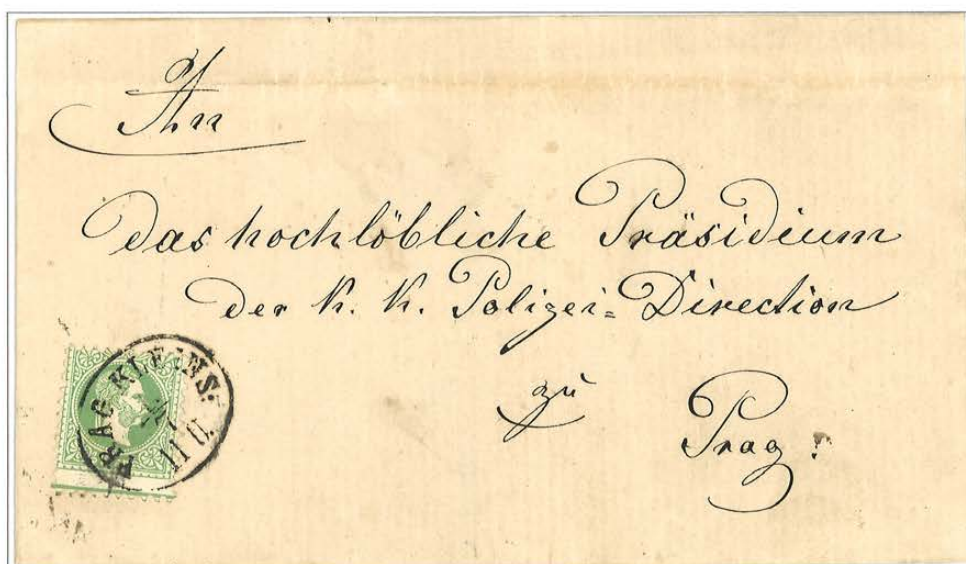 An
das hochlöbliche Präsidium
der k. k. Polizei=Direction
zu
Prag.
PRAG KLEINS:
11 U.